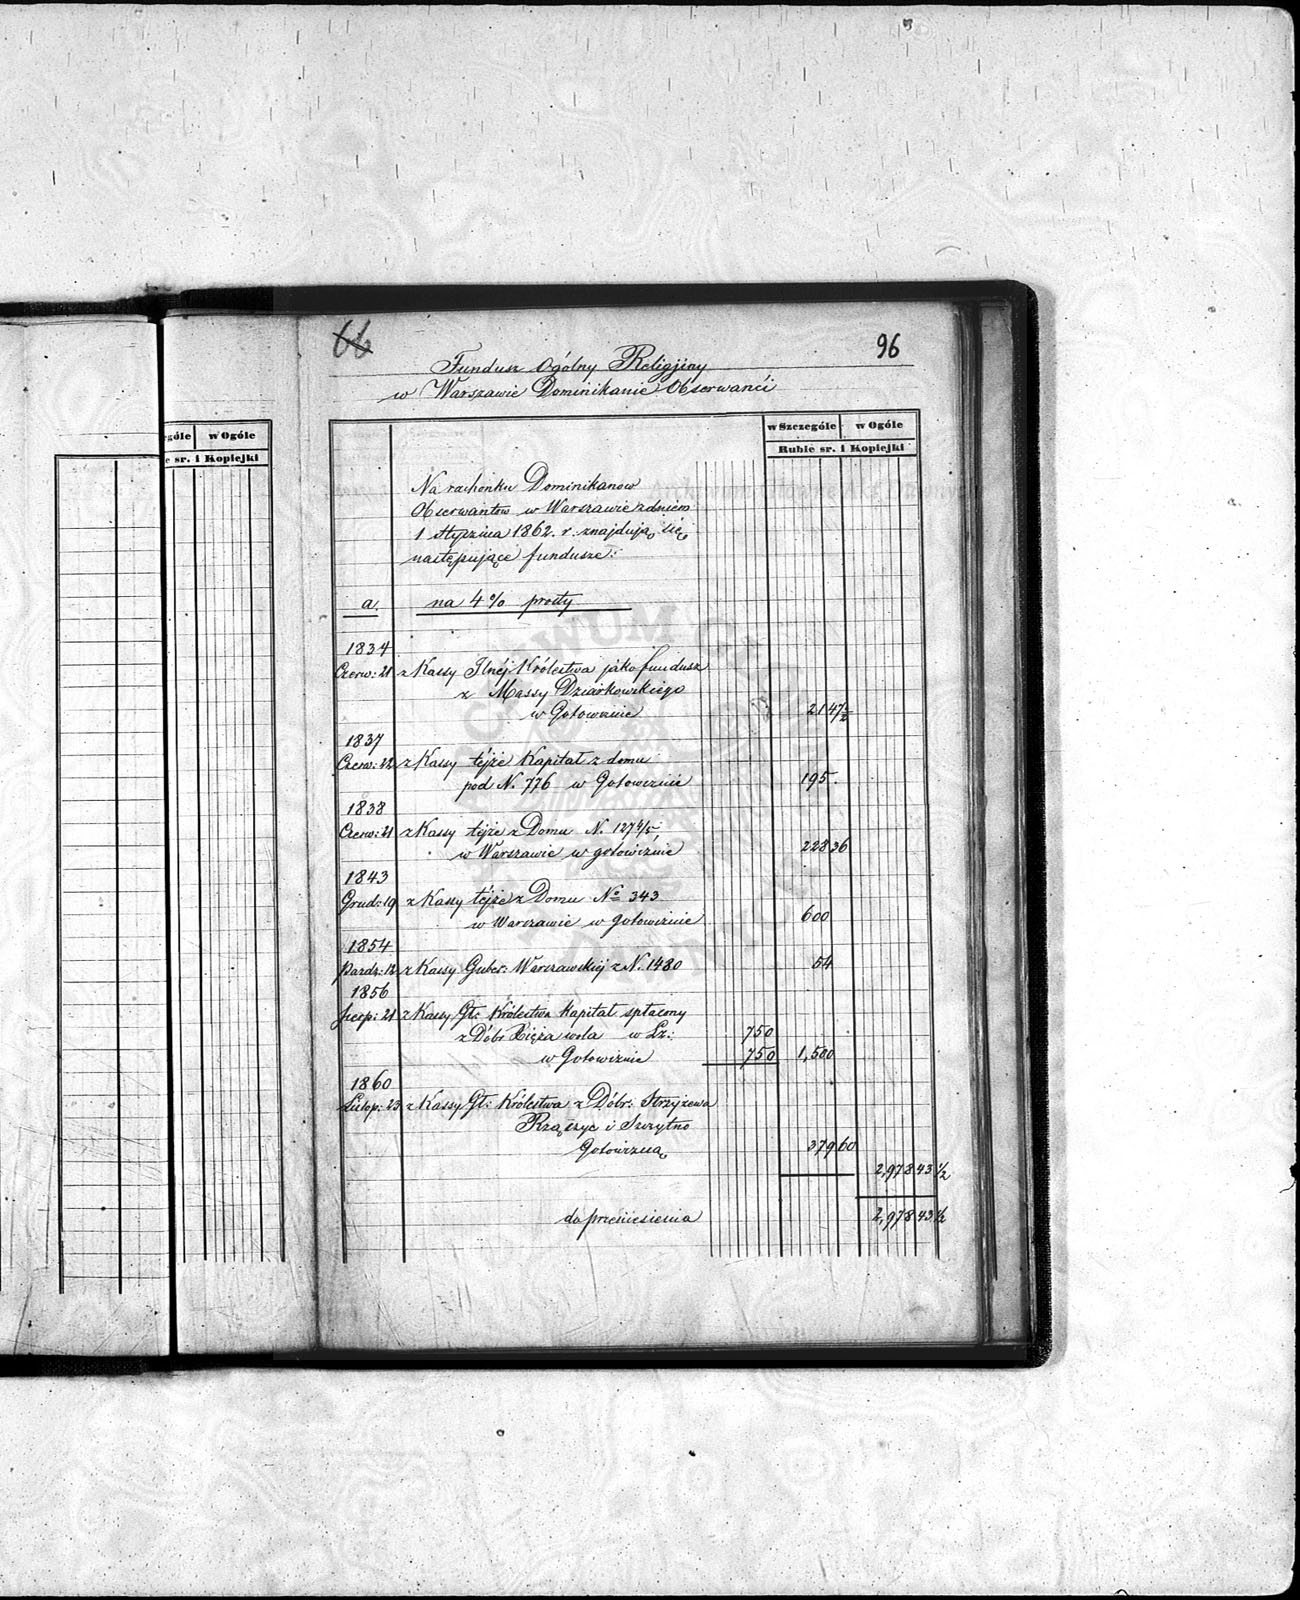 66
96
Fundusz Ogólny Religijny
w Warszawie Dominikanie Obserwanci
w Szczególe w Ogóle
Rubie sr. i Kopiejki
góle w Ogóle
e sr. i Kopiejki
Na rachunku Dominikanow
Obserwantow w Warszawie z dniem
1 Stycznia 1862. r. znajdują się
następujące fundusze:
a. na 4% prosty
1834
Czerw: 21 z Kassy Głnéj Królestwa jako fundusz
z Massy Dziarkowskiego
w Gotowiznie 21 47 1/2
1837
Czerw: 22 z Kassy téjże Kapitał z domu
pod N. 776 w Gotowiznie 195.
1838
Czerw: 21 z Kassy téjże z Domu N. 1274/5,
w Warszawie w gotowiznie 228 36
1843
Grud: 19 z Kassy téjże z Domu No 343
w Warszawie w gotowiznie 600
1854
Pazdz: 12 z Kassy Guber: Warszawskiéj z N. 1480 54
1856
Sierp: 21 z Kassy Gł: Królestwa Kapitał spłacony
z Dóbr Xięża wola w Lz: 750
w Gotowiznie 750 1,500
1860
Listop: 23 z Kassy Gł: Królestwa z Dóbr: Strzyżewa
Rząszyc i Szczytno
Gotowizną 379 60
2,978 43 1/2
do przeniesienia 2,978 43 1/2